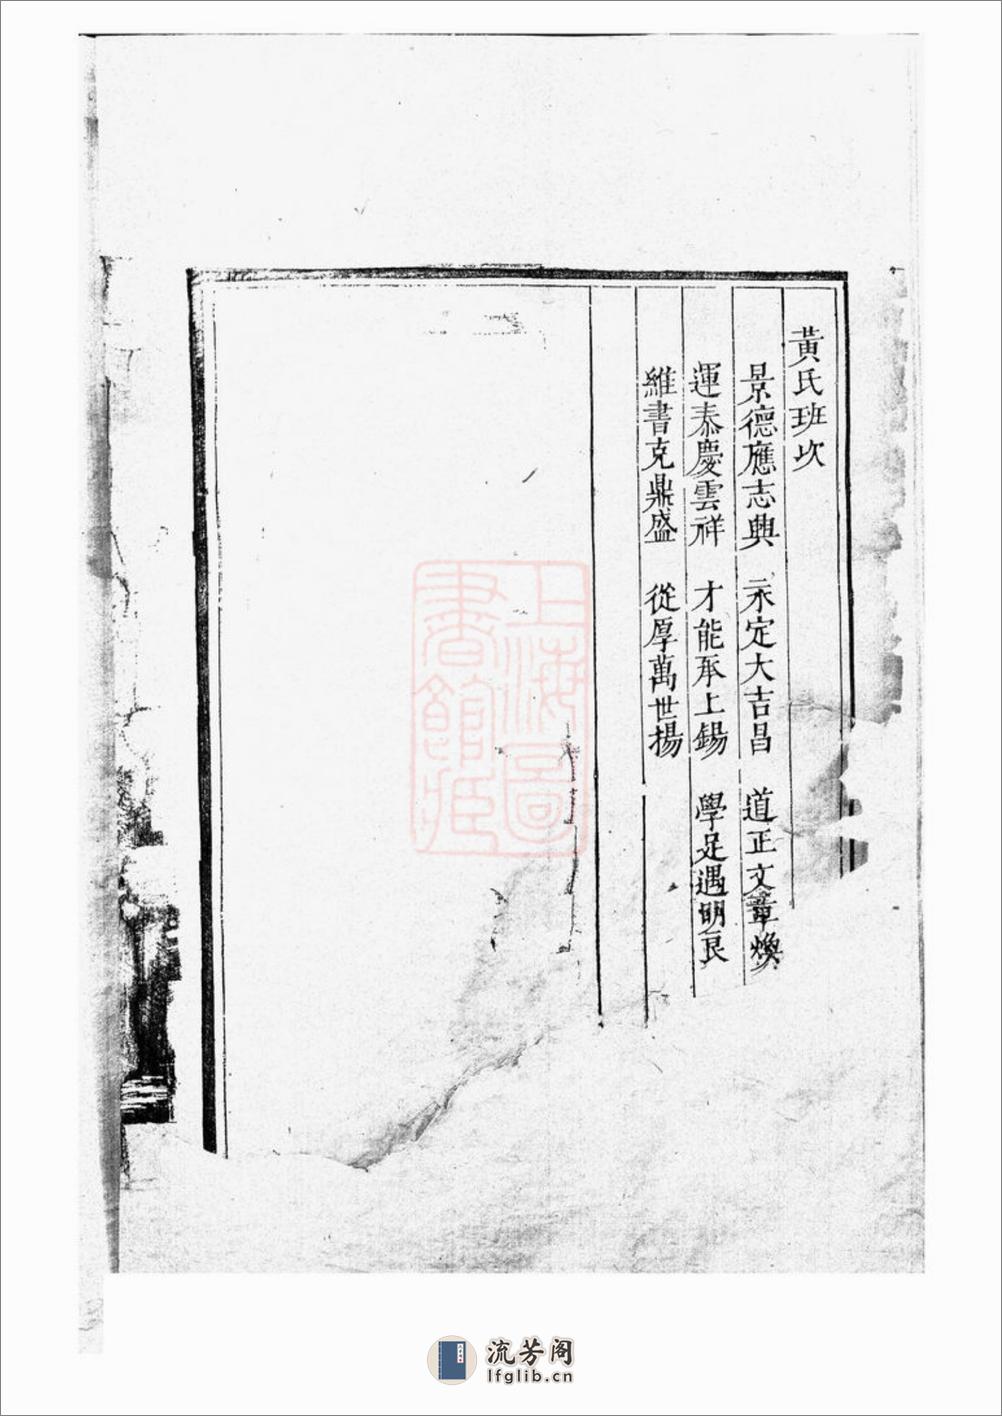 黃氏班次
景德應志典 永定大吉昌 道正文章煥
運泰慶雲祥 才能承上錫 學足遇明良
維書克鼎盛 從厚萬世揚
上海圖書館藏
流芳阁
lfglib.cn